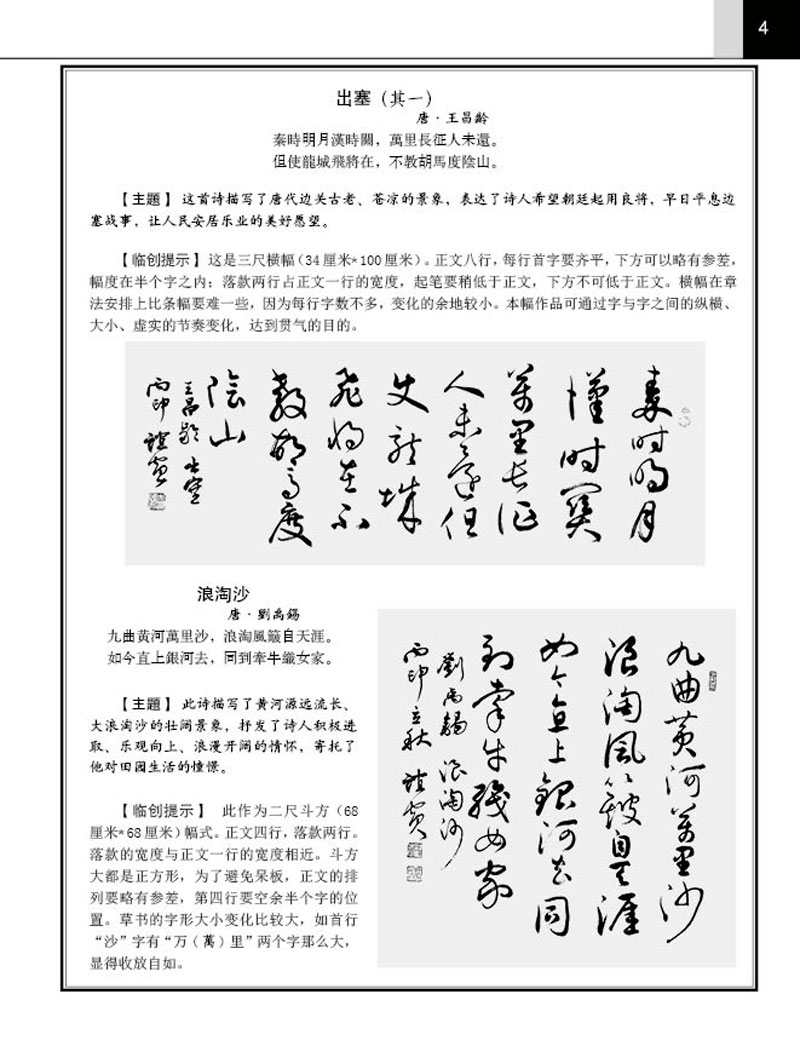 4
出塞（其一）
唐·王昌龄
秦時明月漢時關，萬里長征人未還。
但使龍城飛將在，不教胡馬度陰山。
【主题】 这首诗描写了唐代边关古老、苍凉的景象，表达了诗人希望朝廷起用良将，早日平息边
塞战事，让人民安居乐业的美好愿望。
【临创提示】这是三尺横幅（34厘米*100厘米）。正文八行，每行首字要齐平，下方可以略有参差，
幅度在半个字之内；落款两行占正文一行的宽度，起笔要稍低于正文，下方不可低于正文。横幅在章
法安排上比条幅要难一些，因为每行字数不多，变化的余地较小。本幅作品可通过字与字之间的纵横、
大小、虚实的节奏变化，达到贯气的目的。
秦时明月
漢时関
萬里长征
人未还但
使龙城
飛将在不
教胡马度
陰山
王昌龄 出塞
浪淘沙
唐·劉禹錫
九曲黃河萬里沙，浪淘風簸自天涯。
如今直上銀河去，同到牽牛織女家。
【主题】 此诗描写了黄河源远流长、
大浪淘沙的壮阔景象，抒发了诗人积极进
取、乐观向上、浪漫开阔的情怀，寄托了
他对田园生活的憧憬。
【临创提示】 此作为二尺斗方（68
厘米*68厘米）幅式。正文四行，落款两行。
落款的宽度与正文一行的宽度相近。斗方
大都是正方形，为了避免呆板，正文的排
列要略有参差，第四行要空余半个字的位
置。草书的字形大小变化比较大，如首行
“沙”字有“万（萬）里”两个字那么大，
显得收放自如。
九曲黄河萬里沙
浪淘风簸自天涯
如今直上銀河去同
到牵牛织女家
劉禹錫 浪淘沙